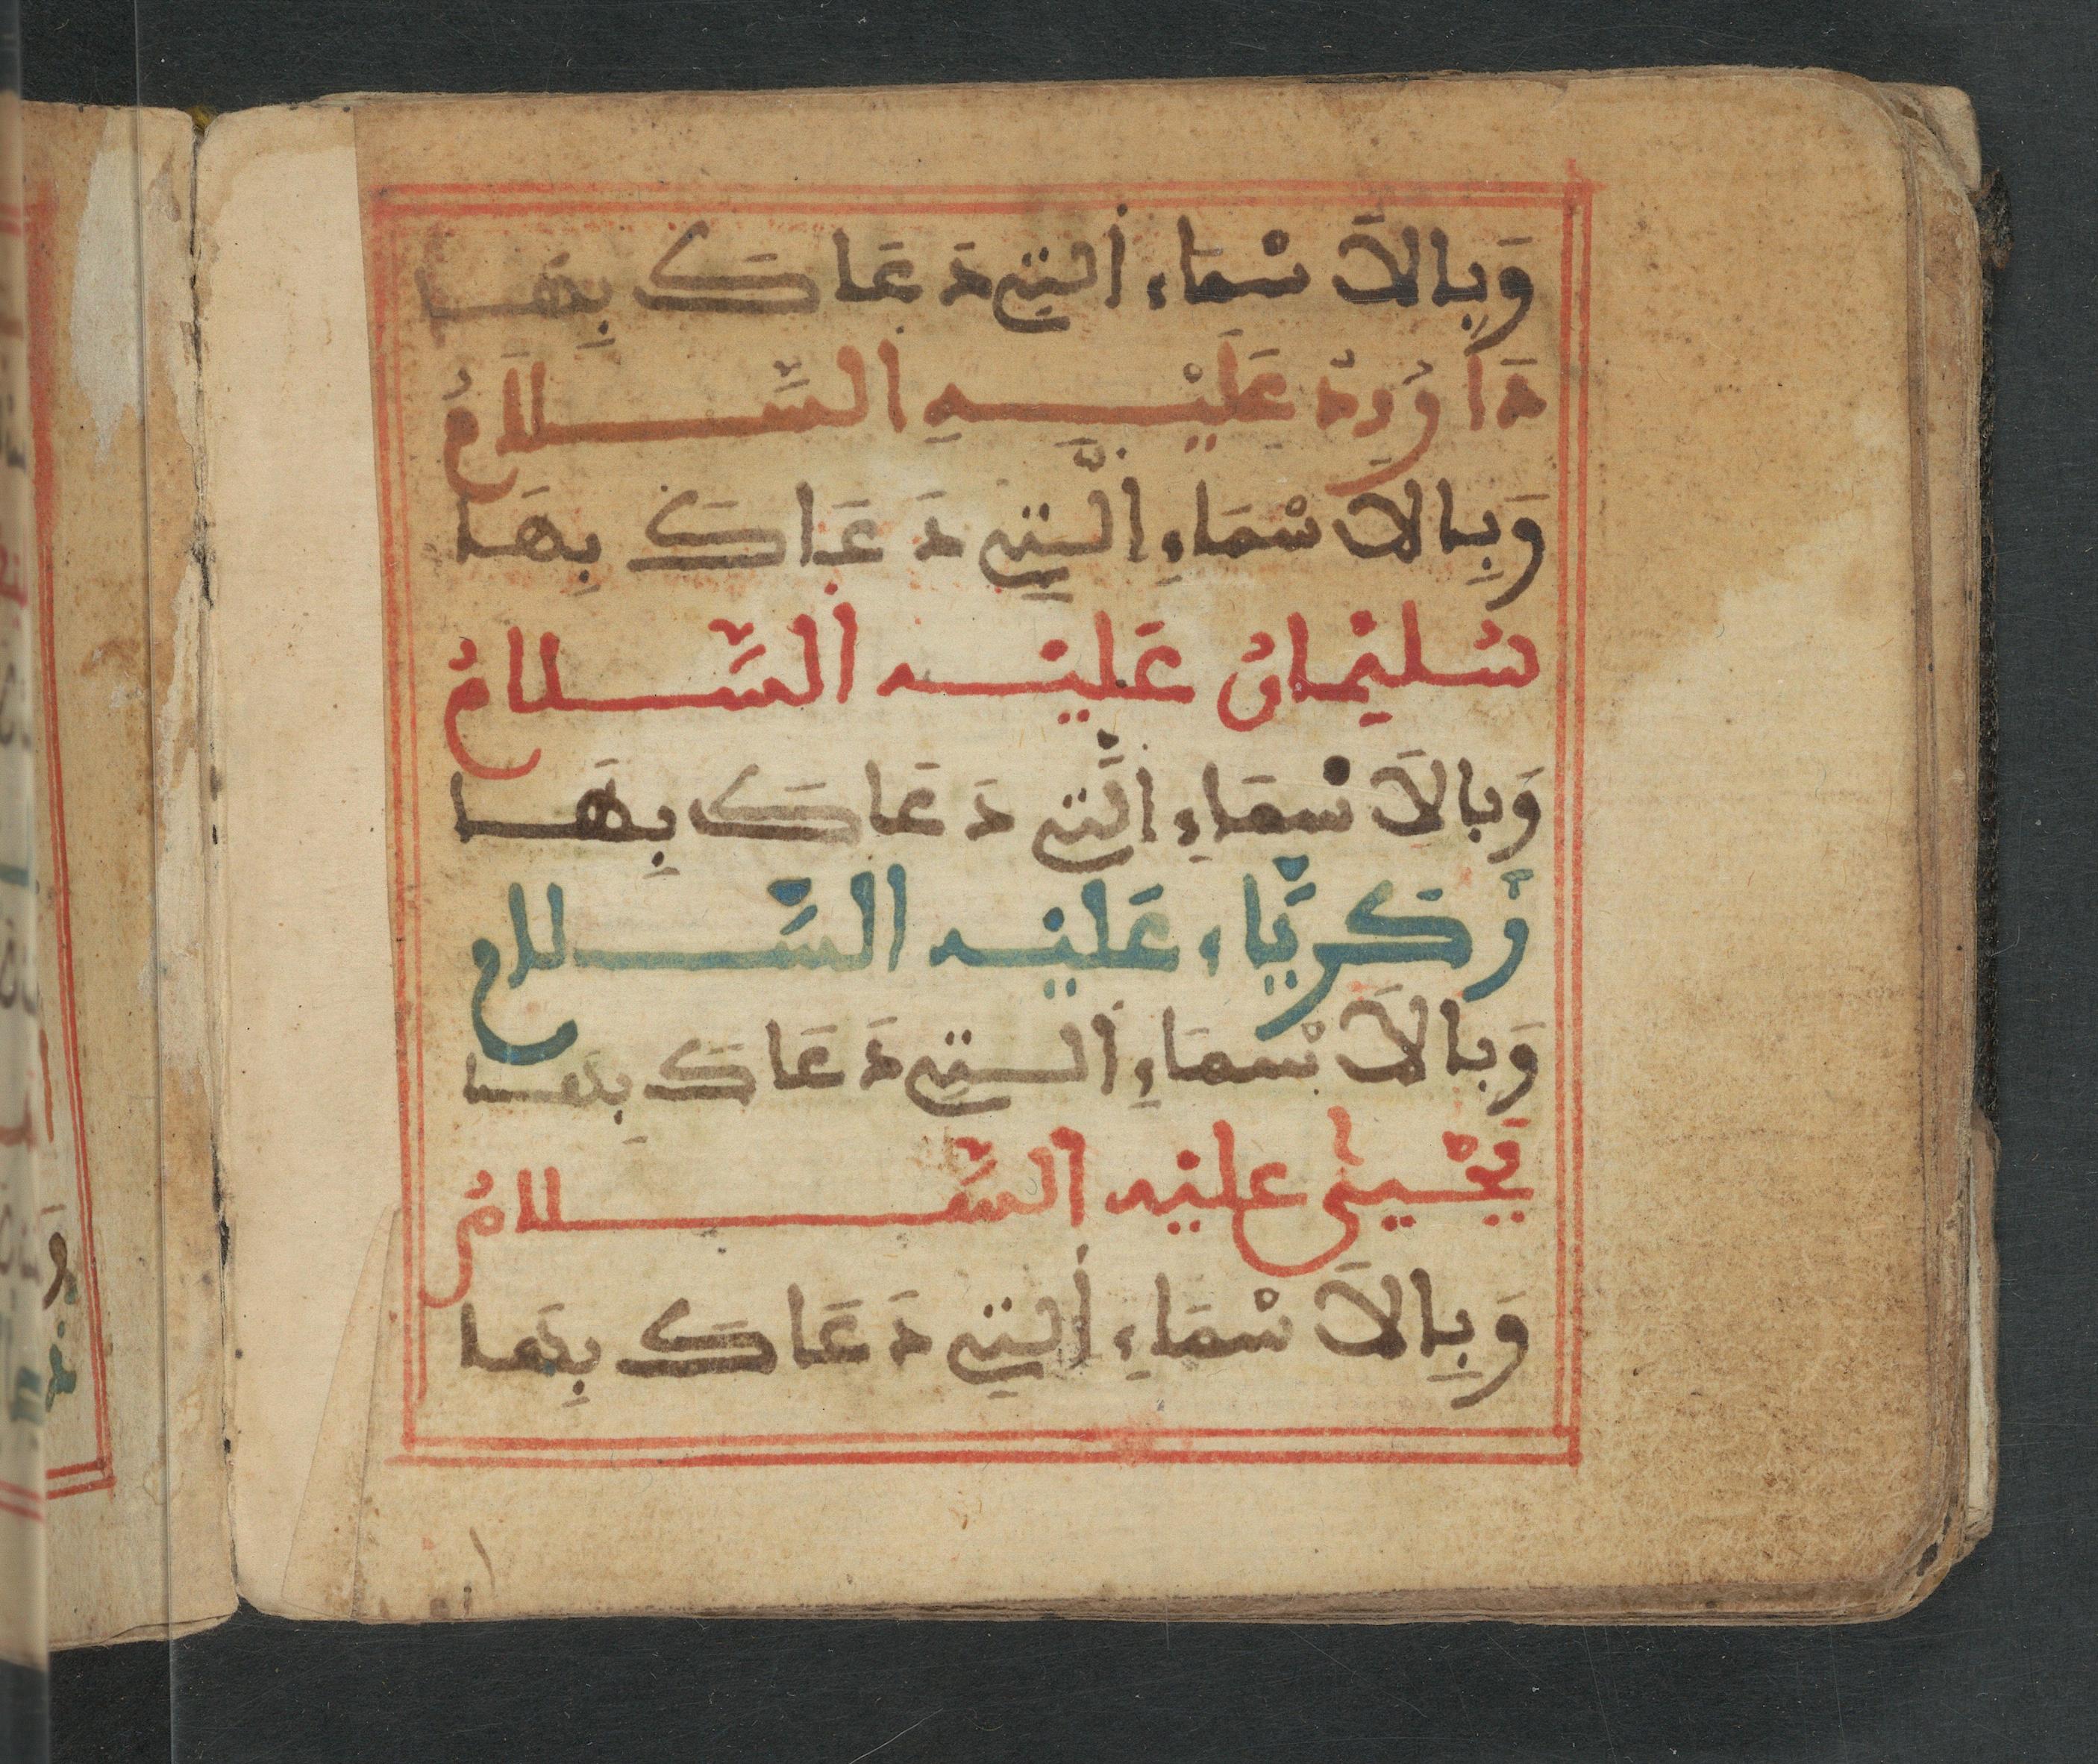 وَبِالاَسْمَاءِ اَلتِي دَعَاكَ بِهَا
دَاوُودُ عَلَيْهِ السَّلَامُ
وَبِالاَسْمَاءِ الَّتِي دَعَاكَ بِهَا
سُلَيْمَانُ عَلَيْهِ السَّلَامُ
وَبِالاَسْمَاءِ الَّتِي دَعَاكَ بِهَا
زَكَرِيَّاءُ عَلَيْهِ السَّلَام
وَبِالاَسْمَاءِ اَلتِي دَعَاكَ بِهَا
يَحْيَى عَلَيْهِ السَّلَامُ
وَبِالاَسْمَاءِ اَلتِي دَعَاكَ بِهَا